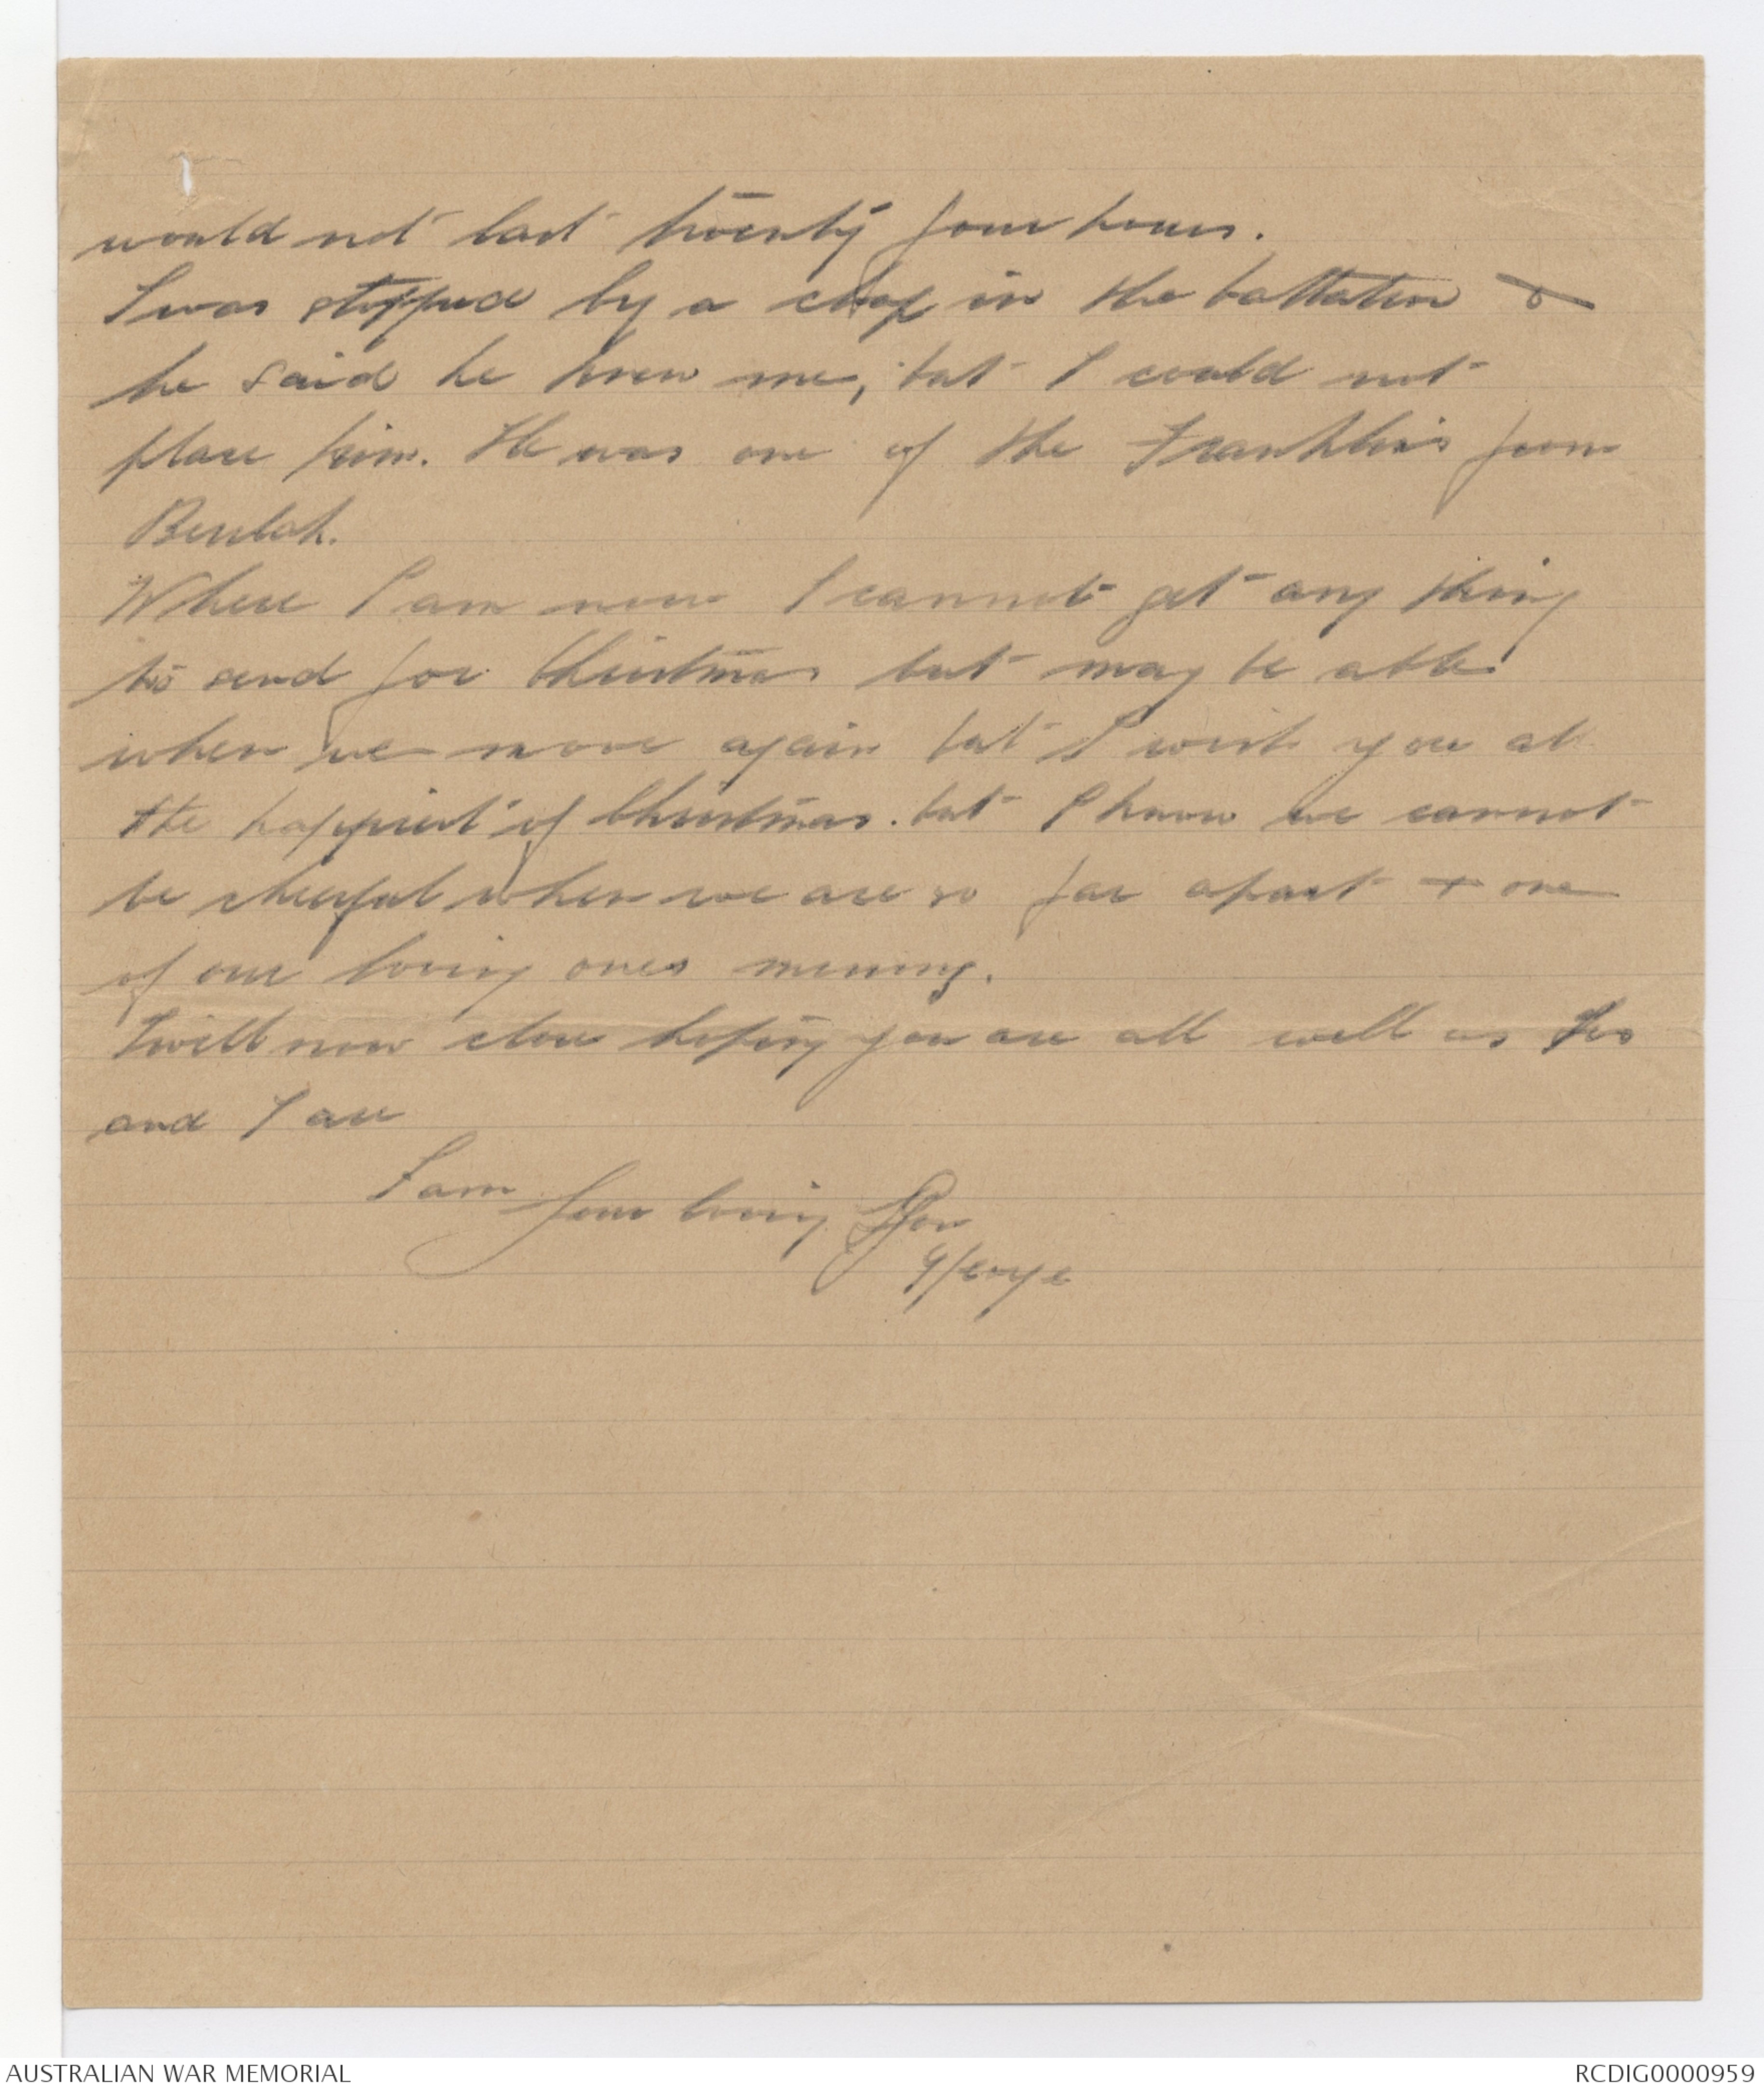 would not last twenty four hours.
I was stopped by a chap in the battalion &
he said he knew me, but I could not
place him. He was one of the Franklins from
Beulah.
Where I am now I cannot get any thing
to send for Christmas but may be able
when we move again but I wish you all
the happiest of Christmas. but I know we cannot
be cheerful when we are so far apart + one
of our loving ones missing.
I will now close hoping you are all well as
and I are
I am
Your loving Son
George
AUSTRALIAN WAR MEMORIAL
RCDIG0000959